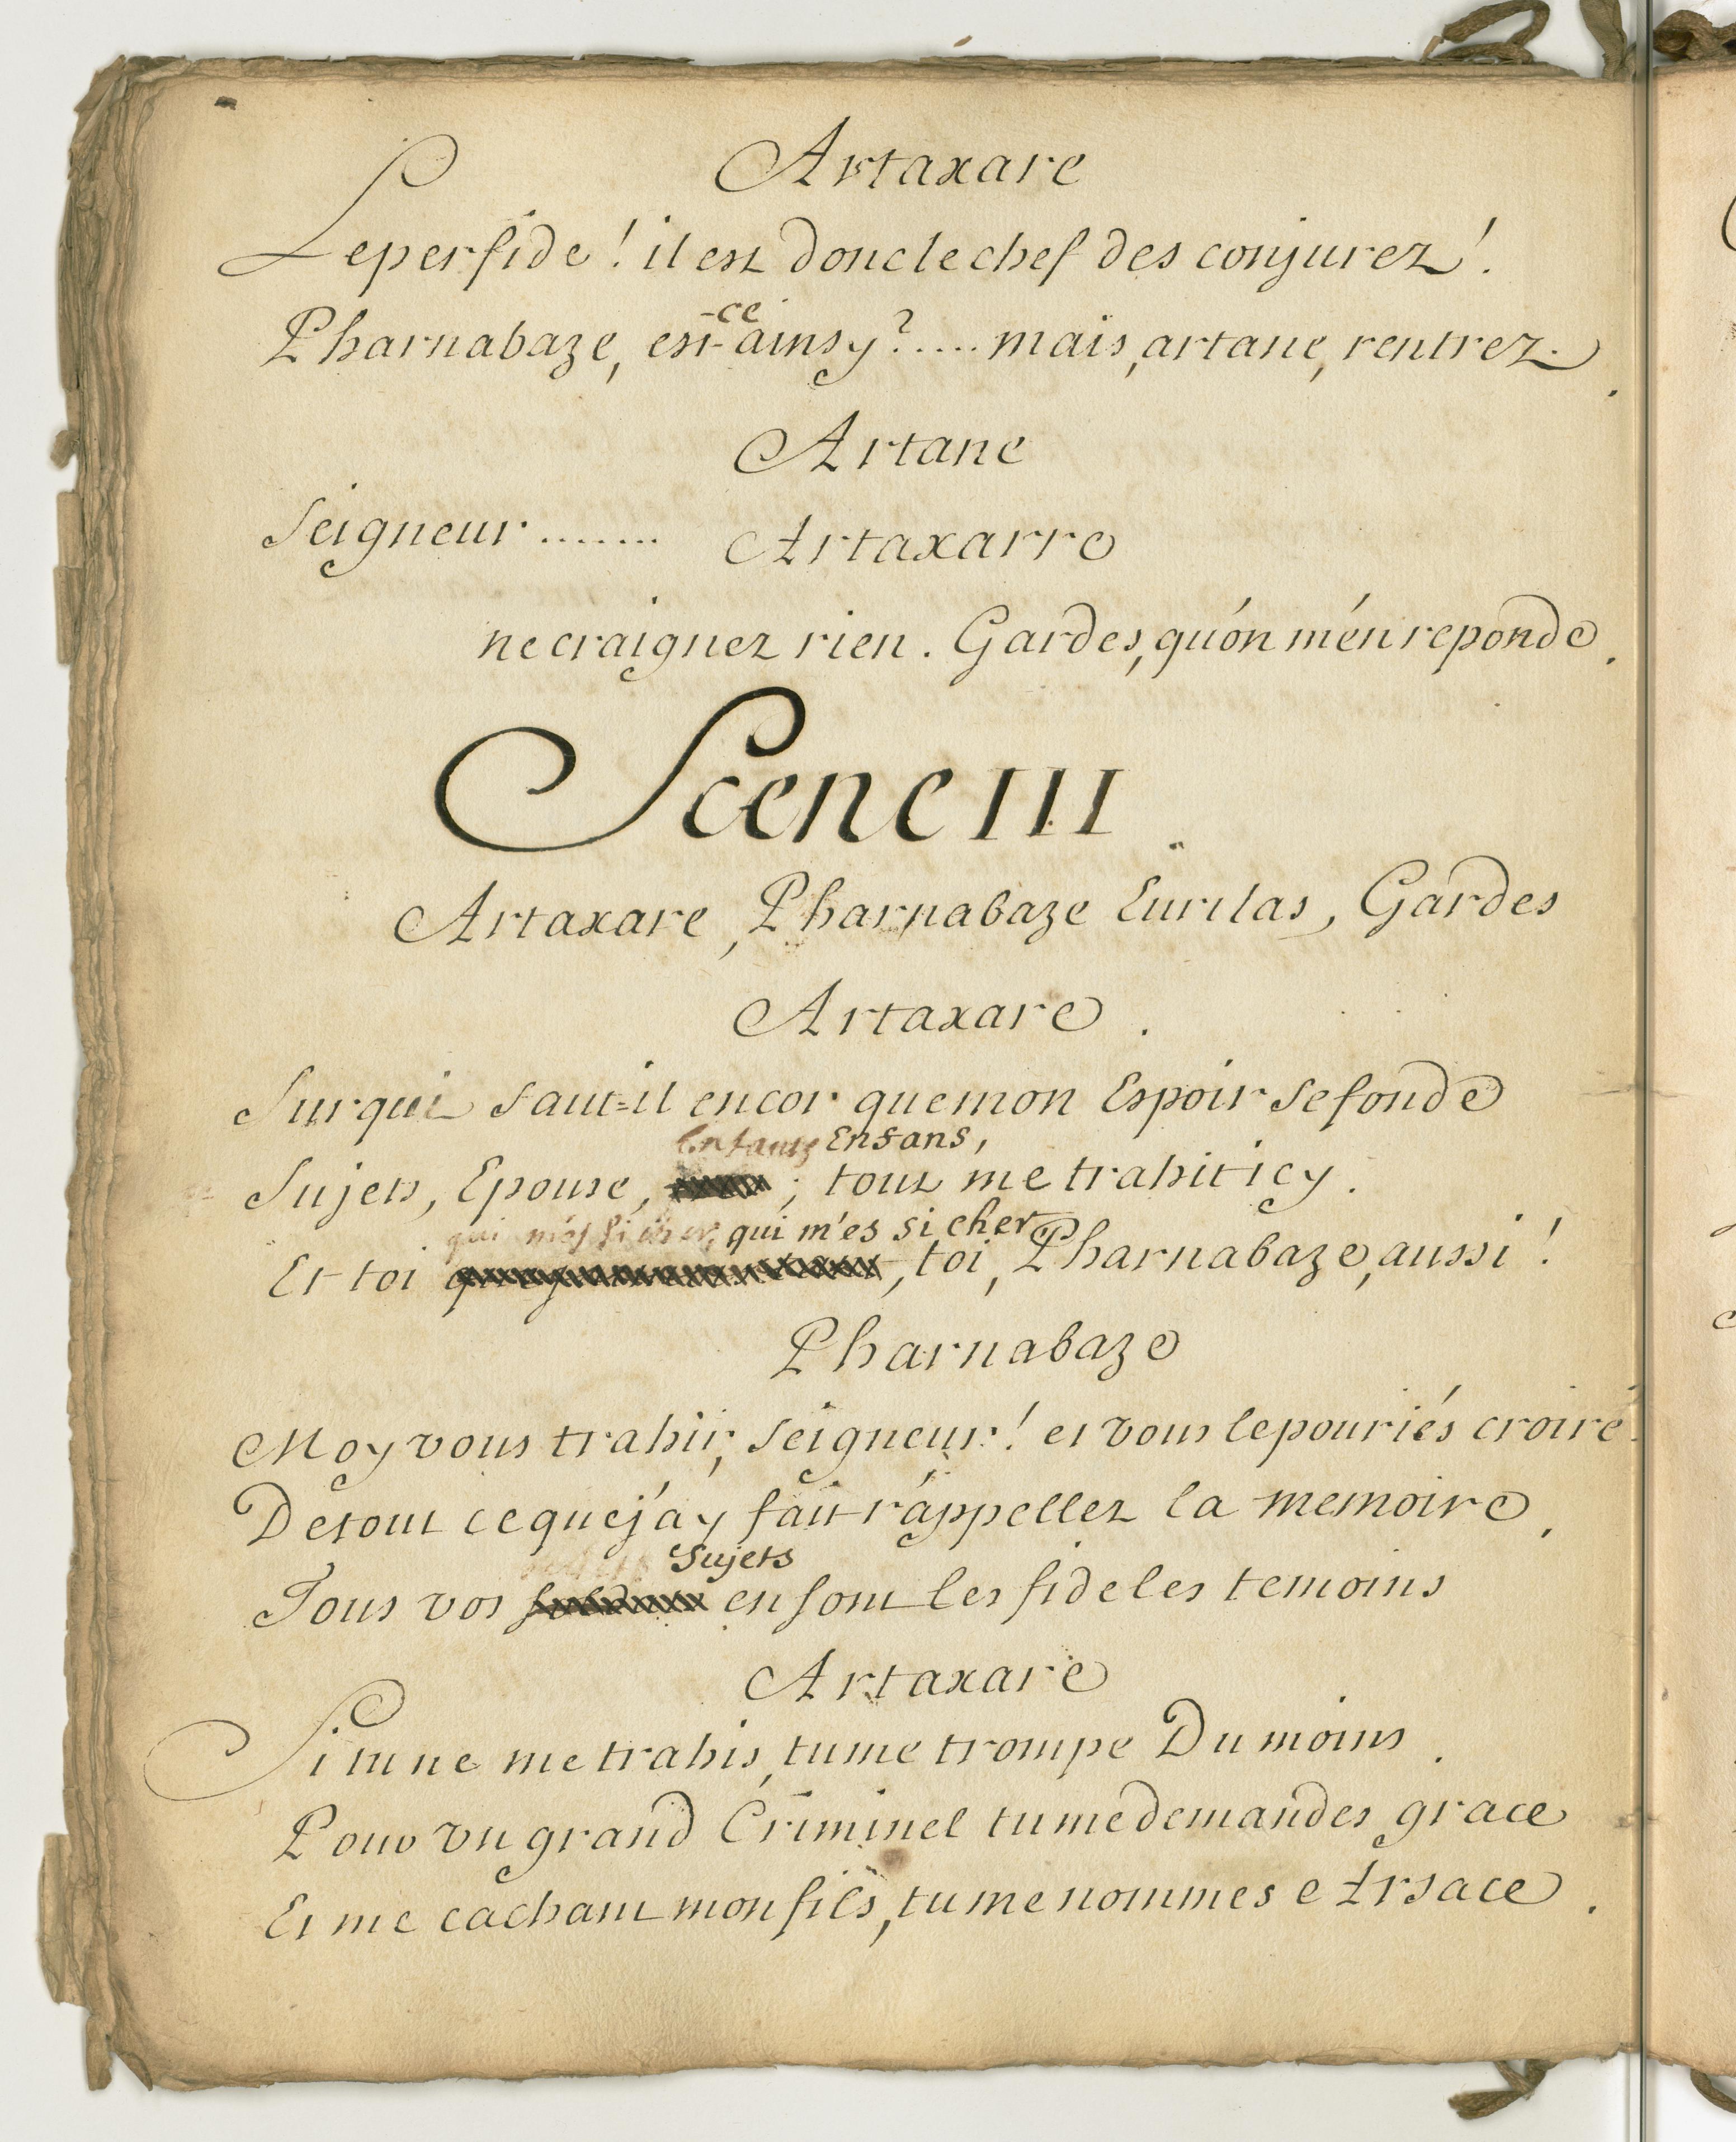 Artaxare
Le perfide ! il est donc le chef des conjurez !
-ce
Pharnabaze, est-ainsy ? ..... mais, artane, rentrez.
Artane
Seigneur .......
Artaxarre
ne craignez rien . Gardes, qu'on m'én reponde .
Scene III
Artaxare, Pharnabaze Eurilas, Gardes
Artaxare .
Sur qui faut=il encor que mon Espoir se fonde
Enfants Enfans,
Sujets, Epouse, ; tout me trahit icy .
qui m'es si cher, qui m'es si cher
Et toi , toi, Pharnabaze, aussi !
Pharnabaze
Moy vous trahir, Seigneur ! et vous le pouriés croire
De tout ce que j'ay fait r'appellez la memoire .
Sujets
Tous vos en sont les fideles temoins
Artaxare
Si tu ne me trahis, tu me trompe Du moins .
Pour vn grand Criminel tu me demandes grace
Et me cachant mon fils, tu me nommes Arsace .